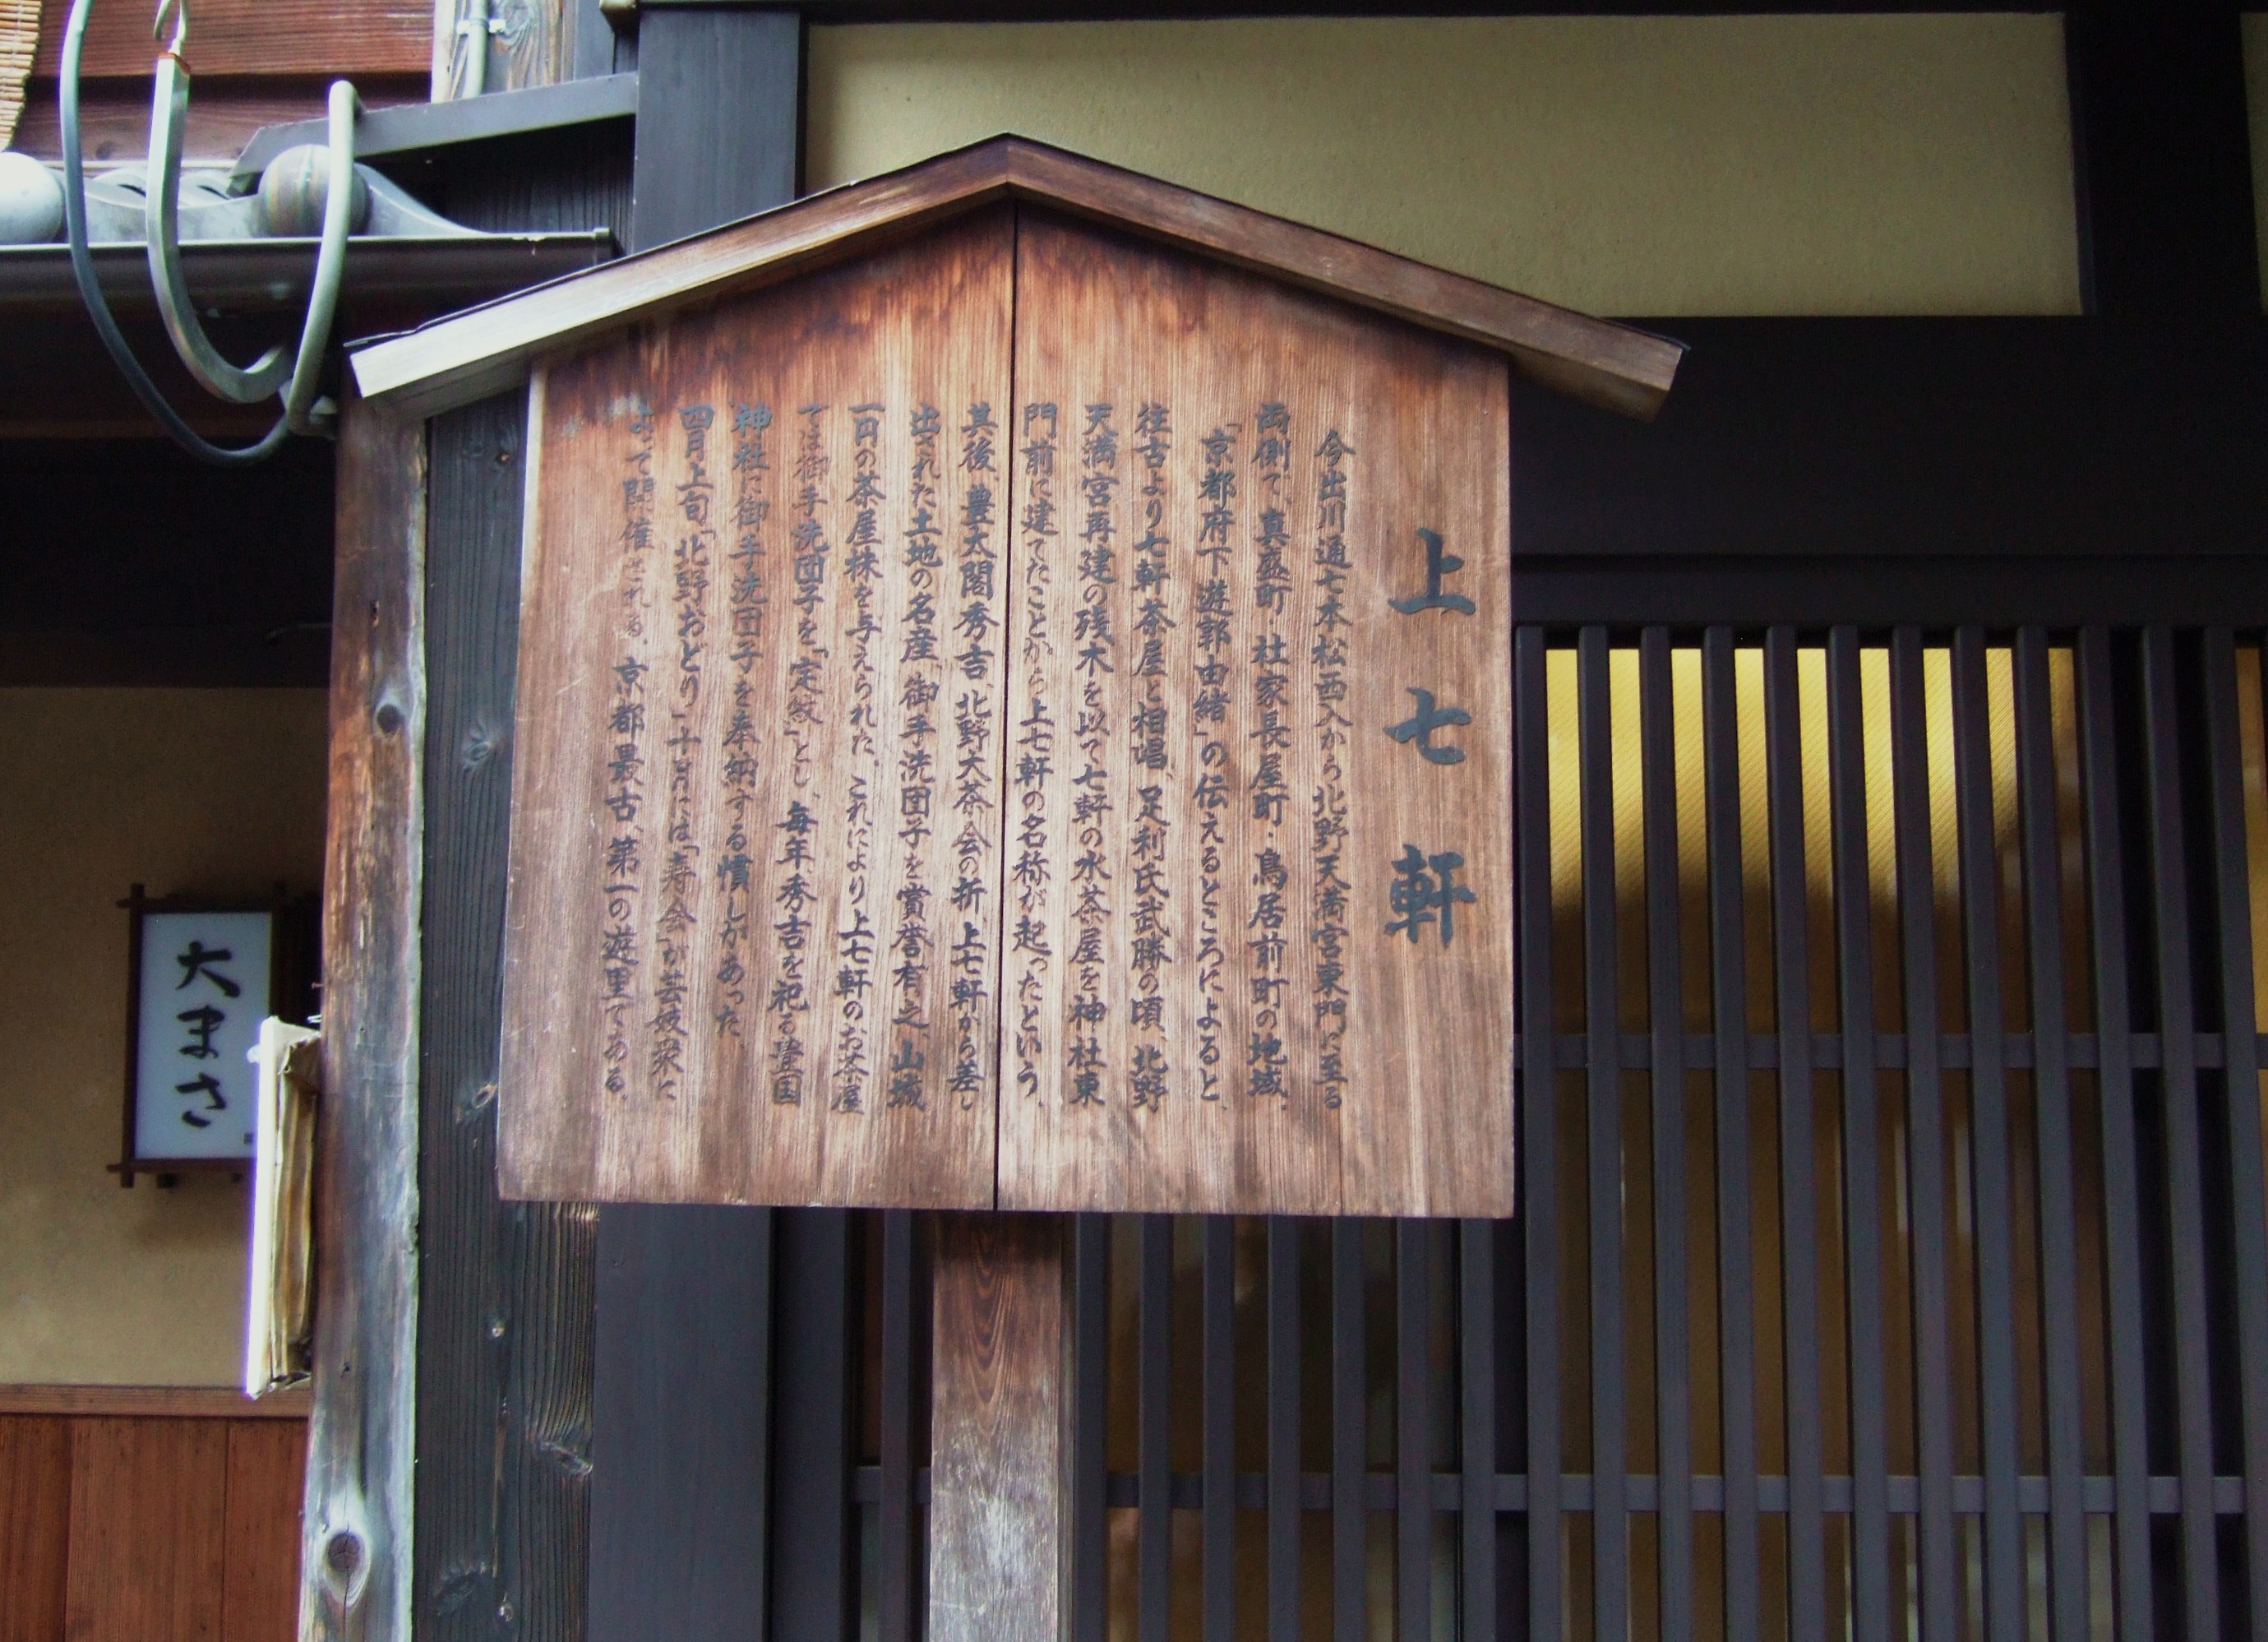 上七軒
今出川通七本松西入から北野天満宮東門に至る
両側で、真盛町・社家長屋町・鳥居前町の地域。
「京都府下遊郭由緒」の伝えるところによると、
往古より七軒茶屋と相唱、足利氏武勝の頃、北野
天満宮再建の残木を以て七軒の水茶屋を神社東
門前に建てたことから上七軒の名称が起ったという。
其後、豊太閤秀吉、北野大茶会の折、上七軒から差し
出された土地の名産「御手洗団子を賞誉有之、山城
一円の茶屋株を与えられた。これにより上七軒のお茶屋
では御手洗団子を「定紋」とし、毎年、秀吉を祀る豊国
神社に御手洗団子を奉納する慣しがあった。
四月上旬「北野おどり」十月には「寿会」が芸妓衆に
よって開催される。京都最古、第一の遊里である。
大まさ